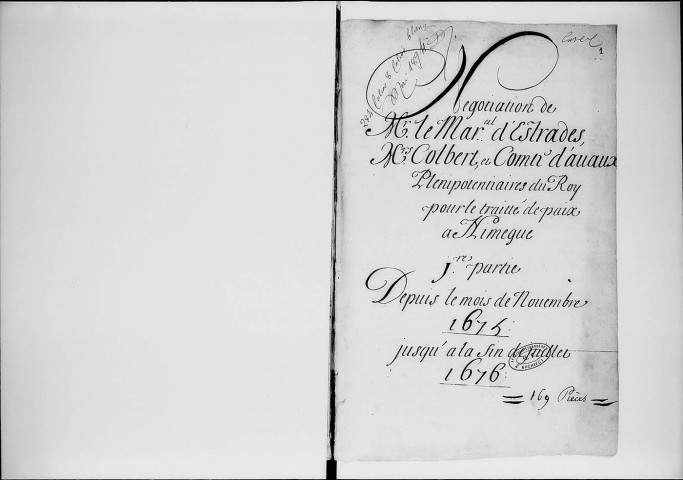 1
Negotiation de
Mr. le Mar.al d'Estrades,
Mrs Colbert, et Comte d'auaux
Plenipotentiaires du Roy
pour le traitté de paix
a Nimegue
J.re partie
Depuis le mois de Nouembre
1675
jusqu'a la fin de Juillet
1676
= 169 Pièces =